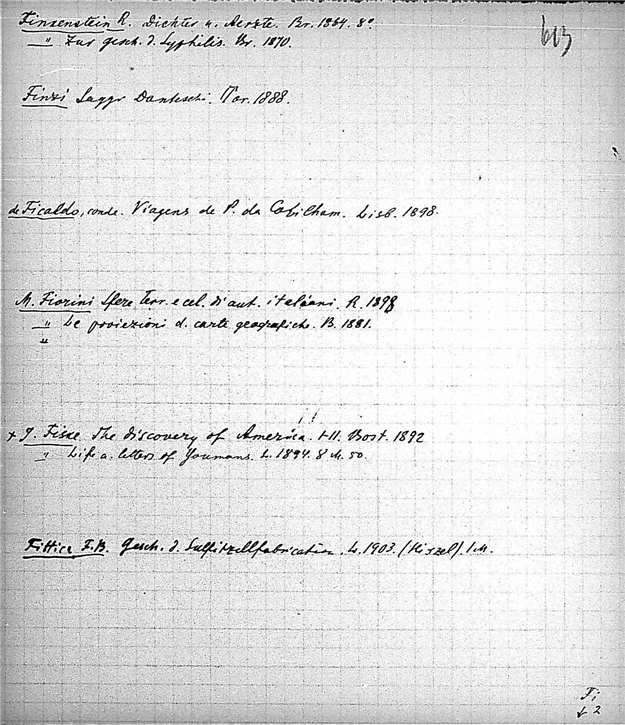 Finsenstein R. Dichter u. Aerzte. Br. 1864. 8°.
613
" Zur gesch. d. Syphilis. Br. 1870.
Finzi Saggi Danteschi. Tor. 1888.
de Ficaldo, conde. Viagens de P. da Cobilham. Lisb. 1898.
M. Fiorini Sfere terr. e cel. di aut. italiani. R. 1898
" Le proiezioni d. carte geografiche. B. 1881.
"
+ J. Fiske The discovery of America. I-II. Bost. 1892
" Life a. letters of Youmans. L. 1894. 8 M. 50.
Fittica F.B. Gesch. d. Sulfitzellfabrication. L. 1903. (Hirzel). 1 M.
Fi
2